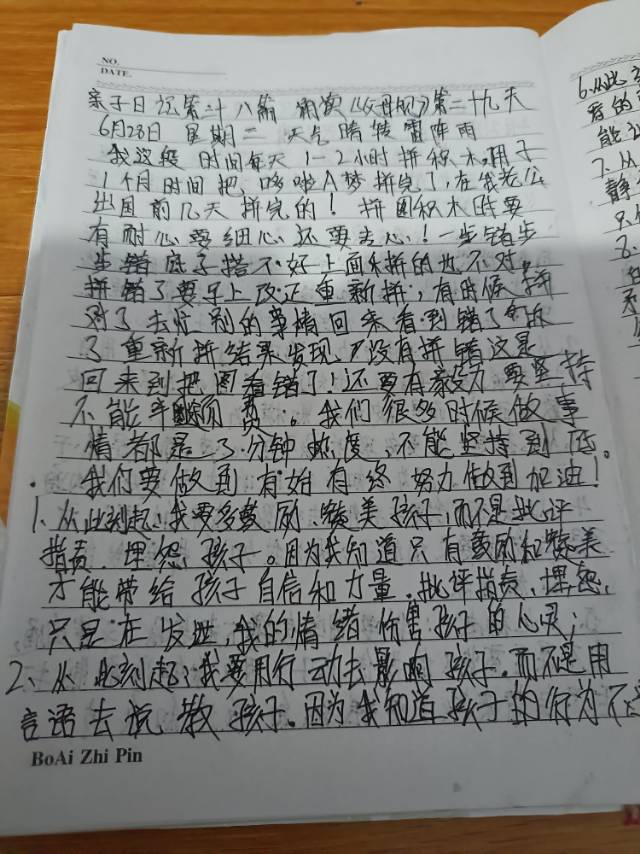 NO.
DATE.
亲子日记第二十八篇 朗读《父母规》第二十九天
6月28日 星期二 天气晴转雷阵雨
我这段时间每天1-2小时拼积木,用了
1个月时间把哆啦A梦拼完了,在我老公
出国前几天拼完的！拼图积木既要
有耐心要细心还要专心！一步错步
步错底子搭不好上面拼的也不对。
拼错了要早上改正重新拼,有时候拼
对了去忙别的事情回来看到错了拆
了重新拼结果发现没有拼错这是
回来到把图看错了！还要有毅力要坚持
不能半途而费。我们很多时候做事
情都是3分钟热度,不能坚持到底。
我们要做到有始有终努力做到加油！
1、从此刻起:我要多鼓励、赞美孩子,而不是批评
指责、埋怨孩子。因为我知道只有鼓励和赞美
才能带给孩子自信和力量,批评指责、埋怨,
只是在发泄我的情绪伤害孩子的心灵；
2、从此刻起:我要用行动去影响孩子,而不是用
言语去说教孩子。因为我知道孩子的行为不
BoAi Zhi Pin
6.从此
看的
能
7.从
静
只
8.